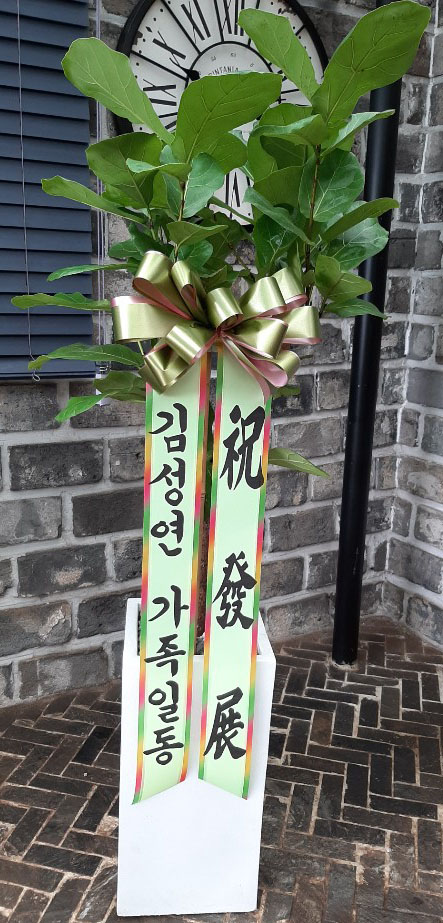 祝發展
김성연 가족일동